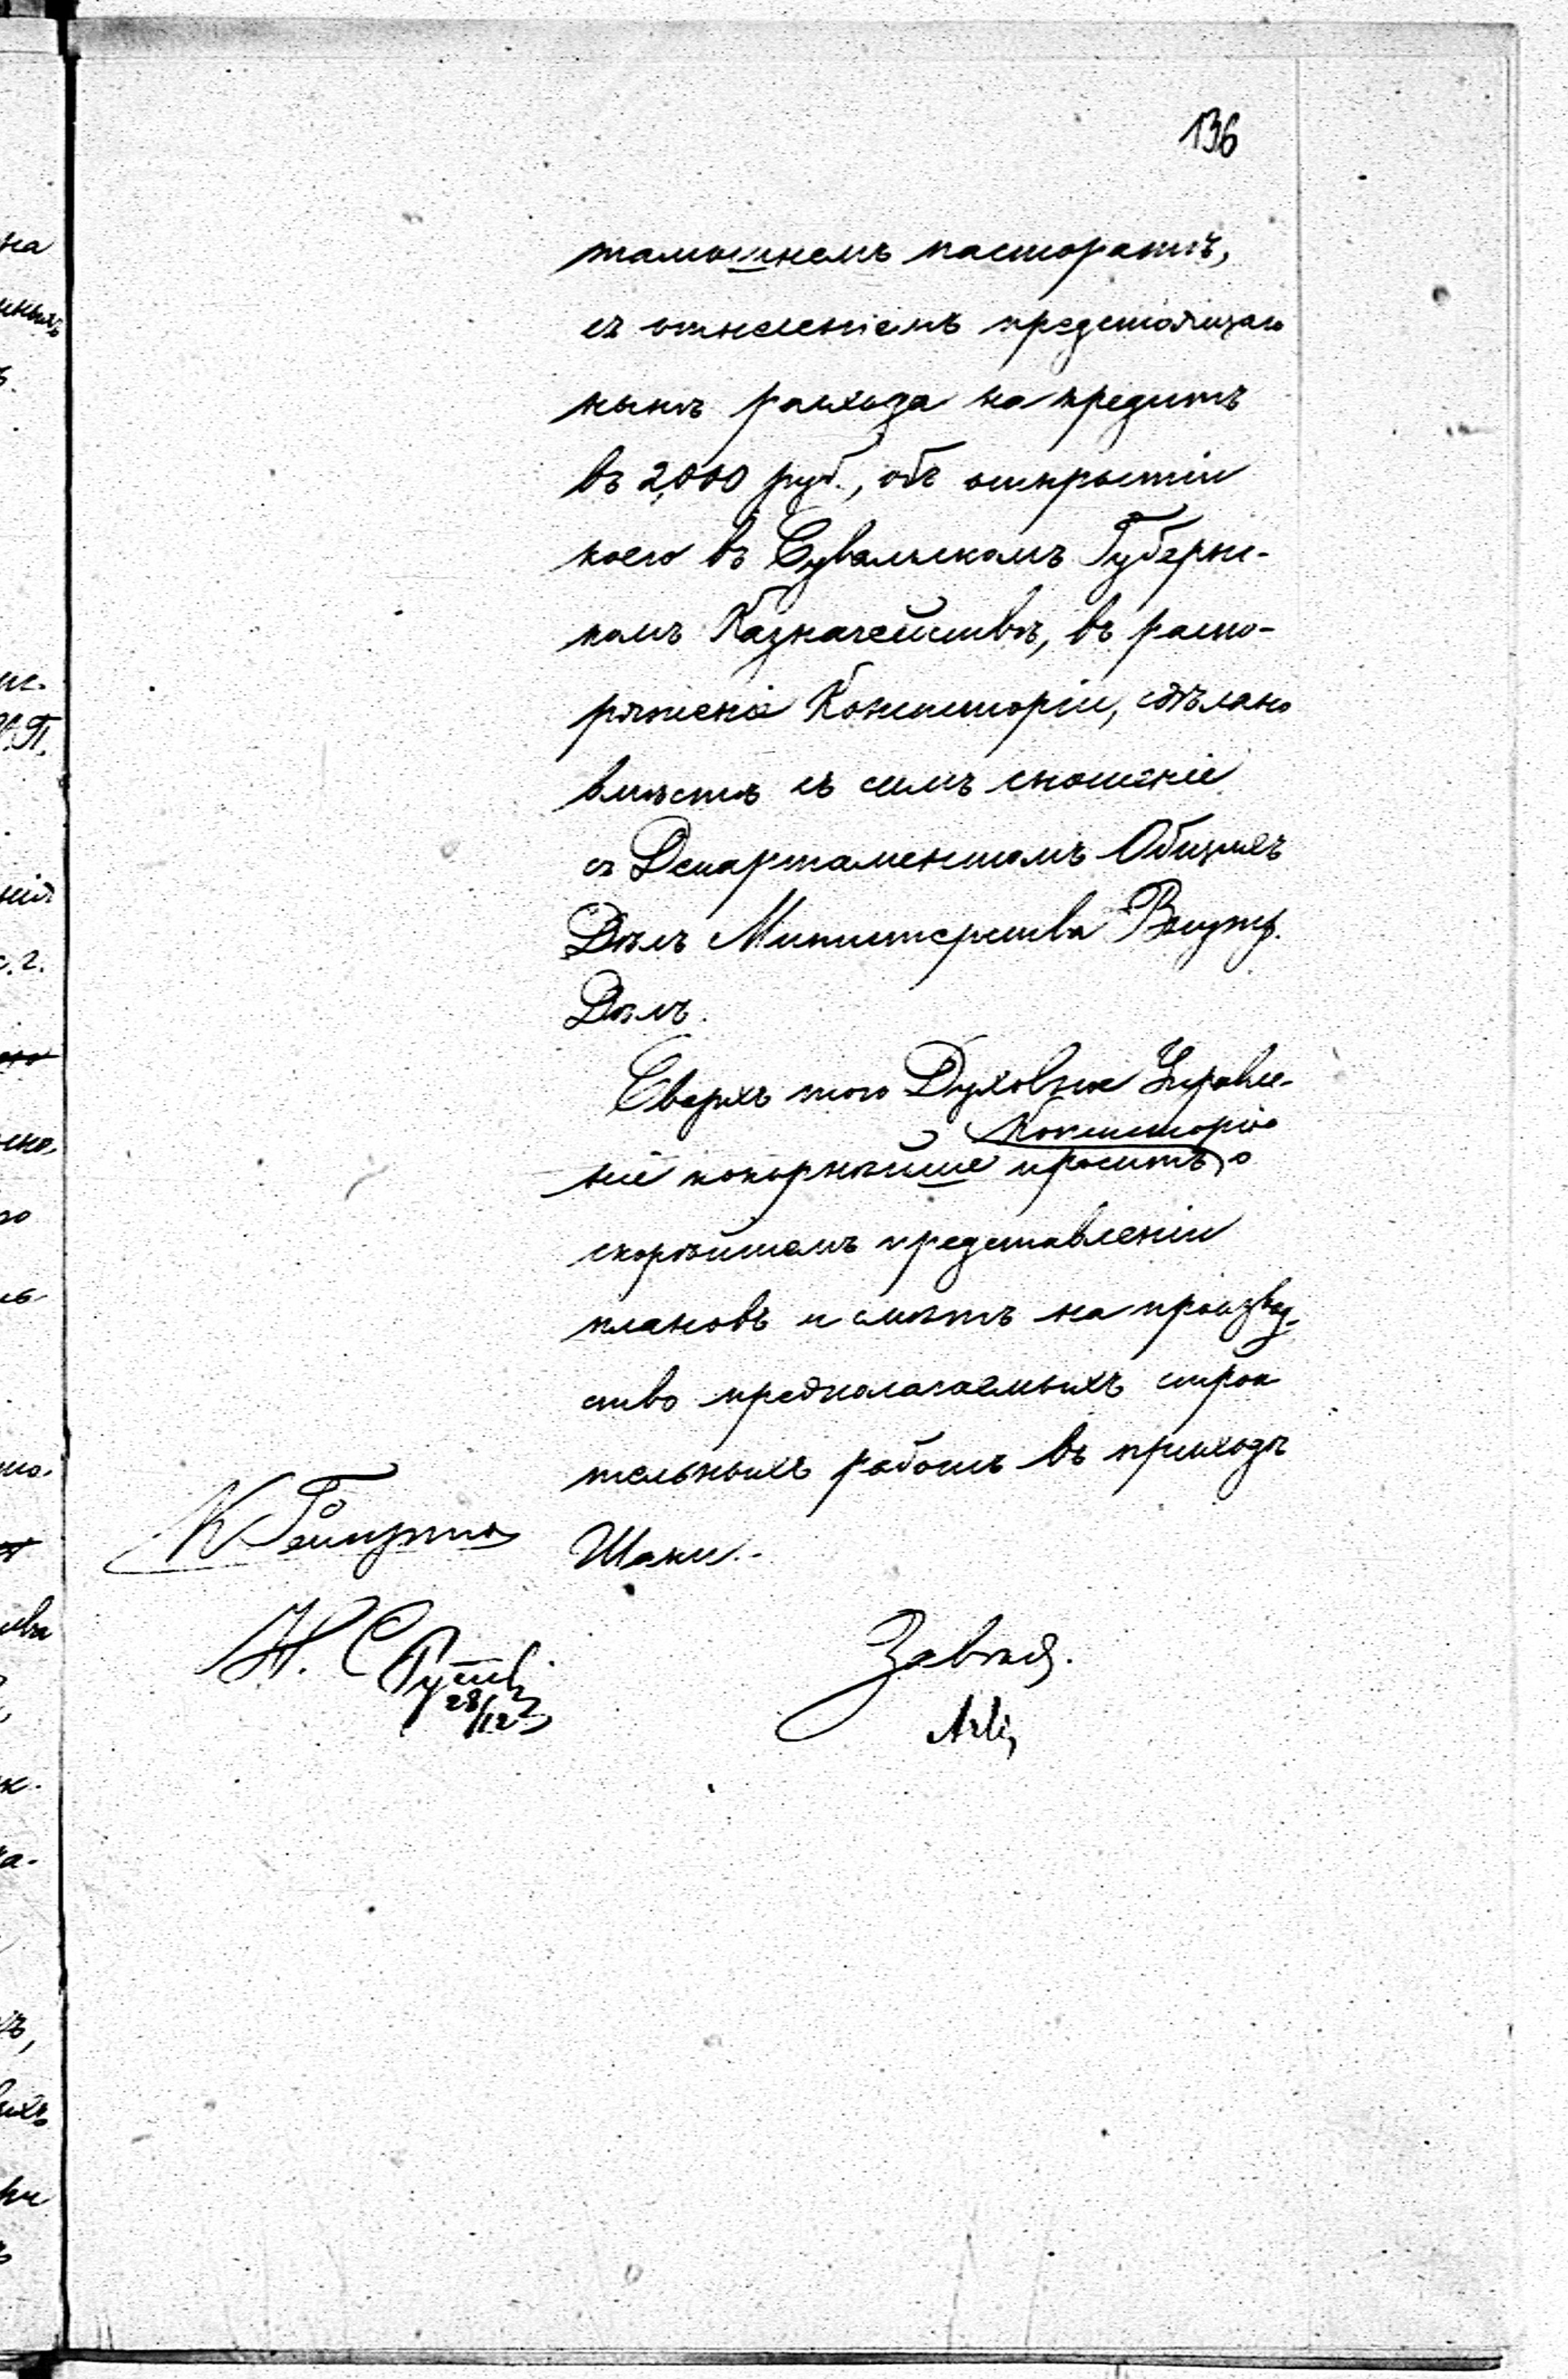 136
тамошнемъ пасторатѣ,
съ отнесеніемъ предстоящаго
нынѣ расхода на кредитъ
въ 2,000 руб., объ открытіи
коего въ Сувалкскомъ Губернс-
комъ Казначействѣ, въ распо-
ряженіе Консисторіи, сдѣлано
вмѣстѣ съ симъ сношеніе
съ Департаментомъ Общихъ
Дѣлъ Министерства Внутр.
Дѣлъ.
Сверхъ того Духовное Управле-
Консисторію
ніе покорнѣйше проситъ о
скорѣйшемъ представленіи
плановъ и смѣтъ на производ-
ство предполагаемыхъ строи
тельныхъ работъ въ приходѣ
Шаки.
28/12